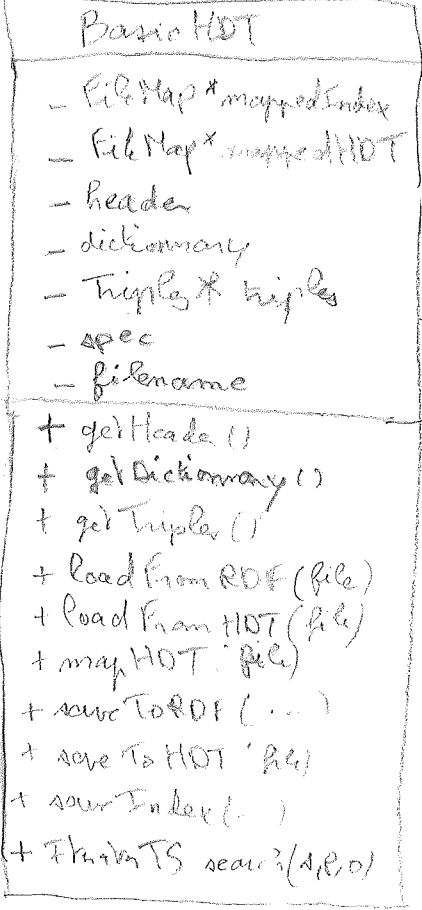 BasicHDT
- FileMap* mappedIndex
- FileMap* mappedHDT
- header
- dictionnary
- Triples* triples
- spec
- filename
+ getHeader()
+ getDictionnary()
+ getTriples()
+ loadFromRDF(file)
+ loadFromHDT(file)
+ mapHDT(file)
+ saveToRDF(...)
+ saveToHDT(file)
+ saveIndex(...)
+ search(s,p,o)